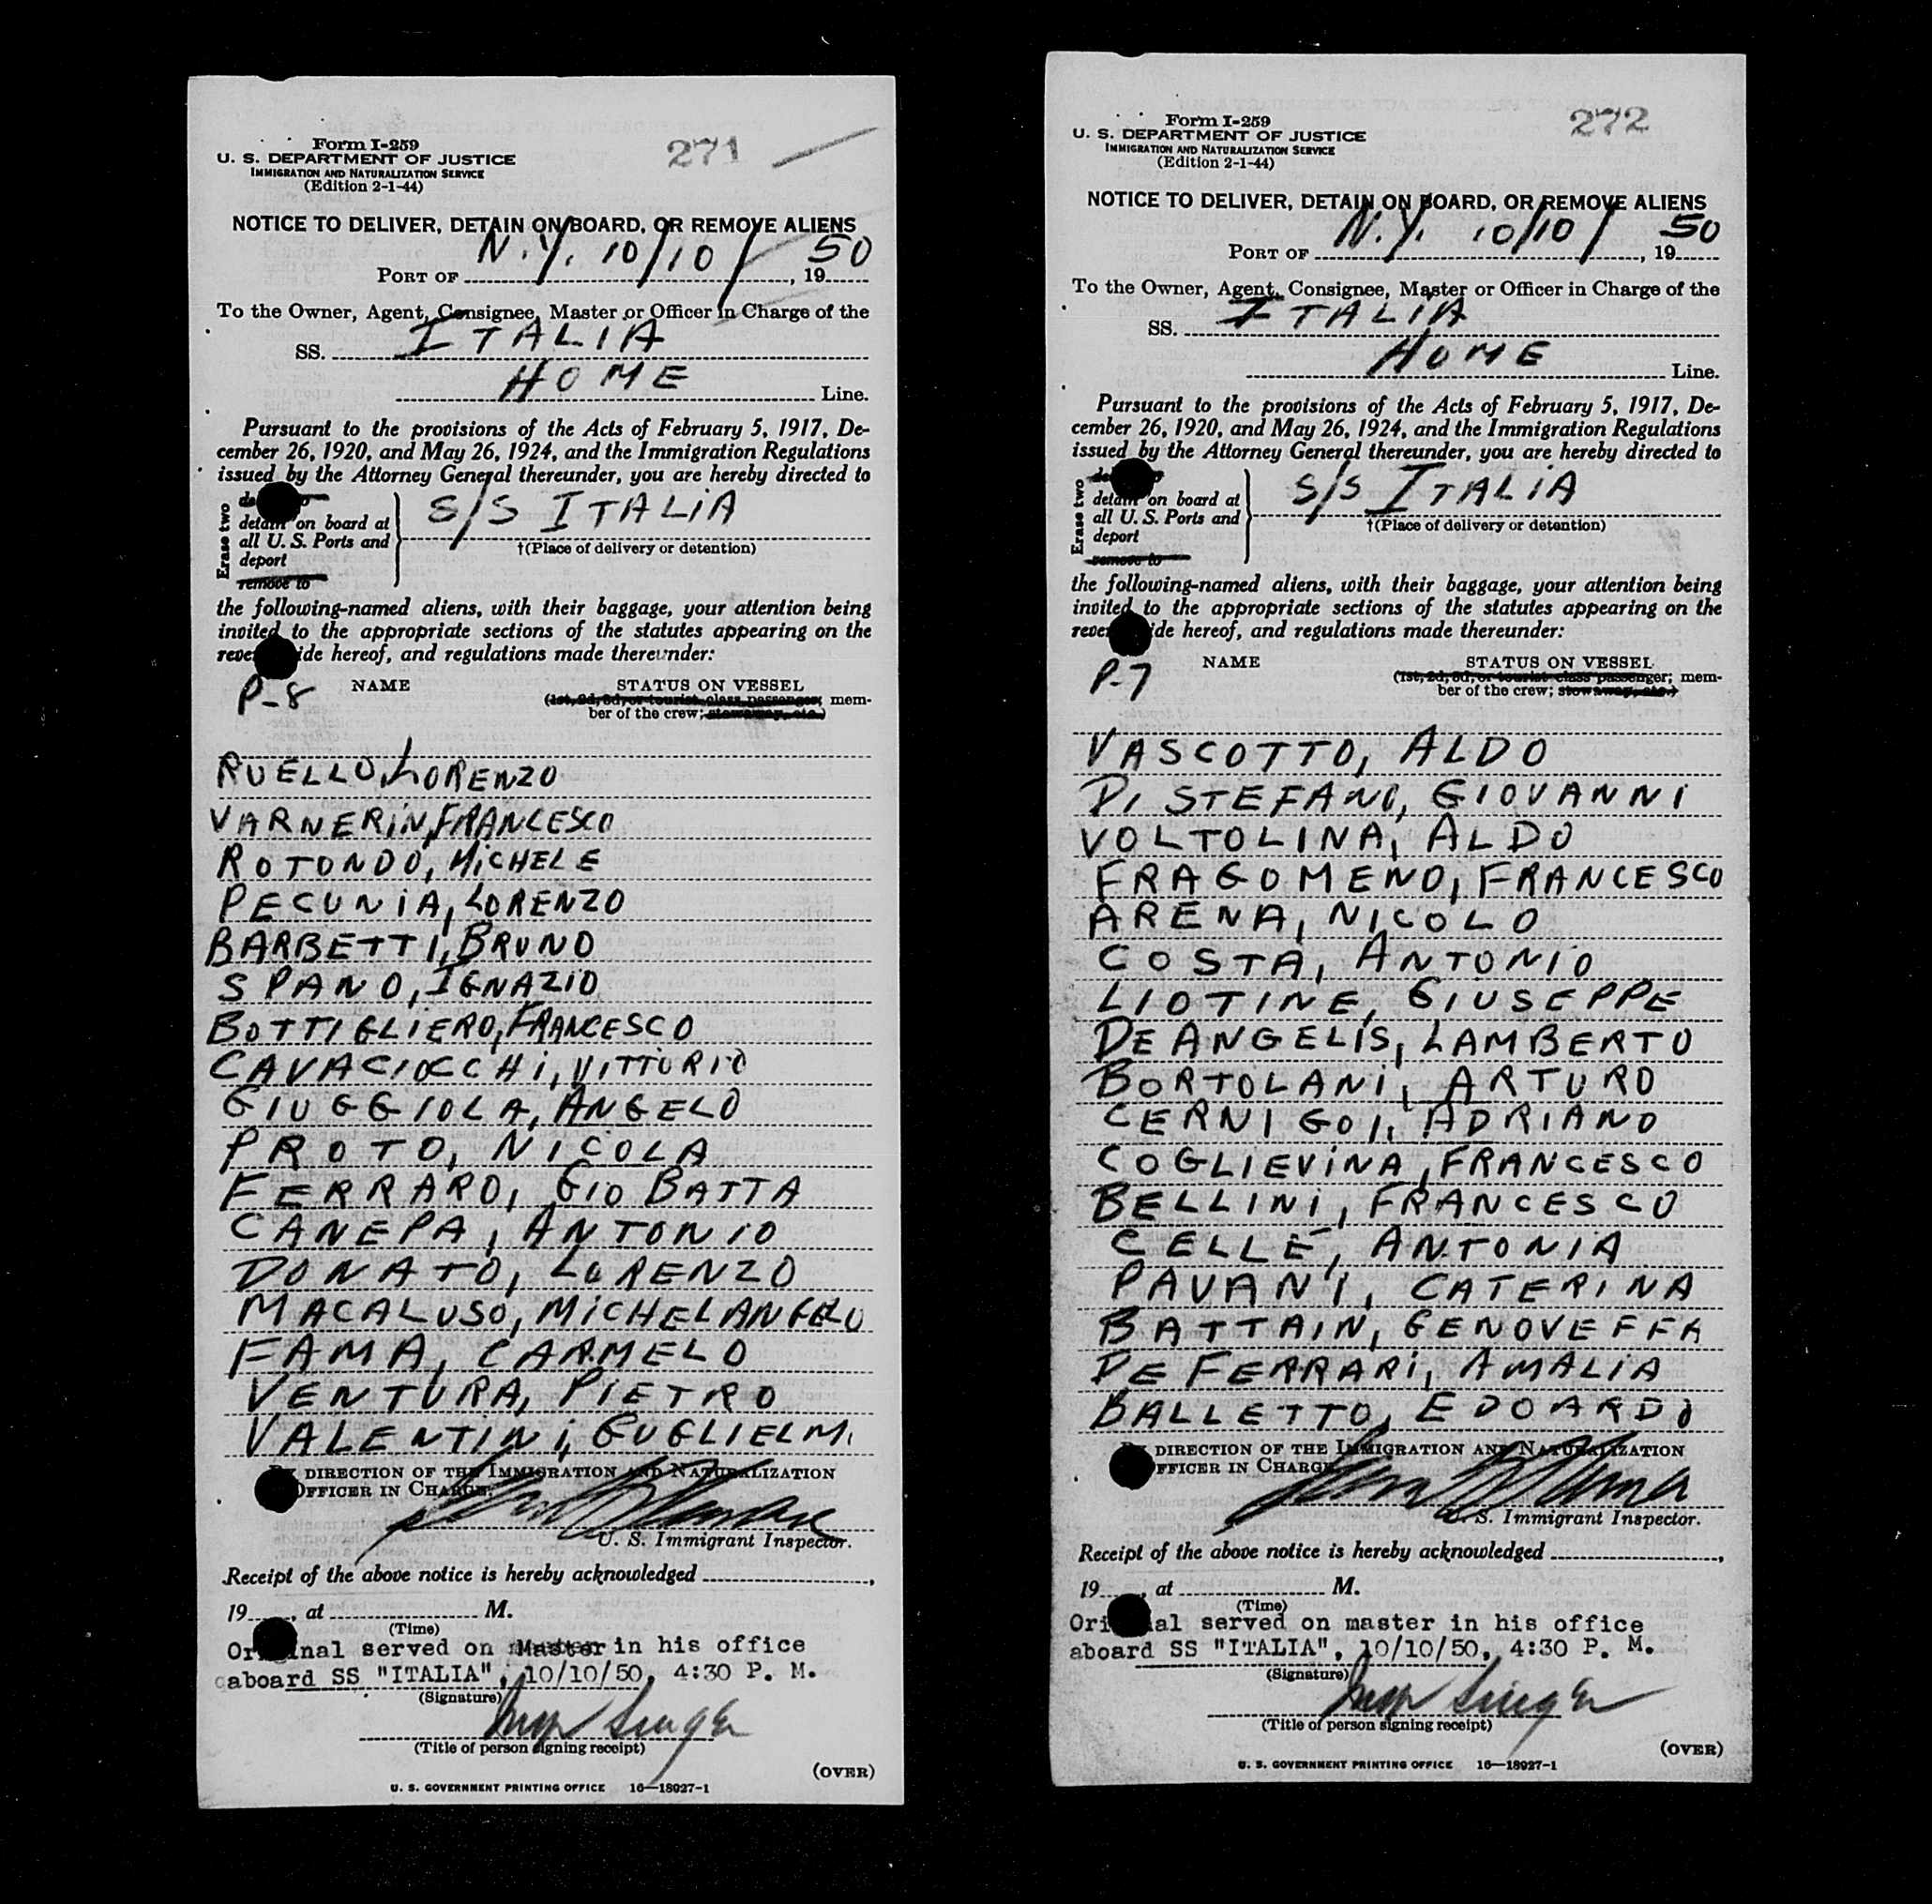 271
Form I-259
U. S. DEPARTMENT OF JUSTICE
IMMIGRATION AND NATURALIZATION SERVICE
(Edition 2-1-44)
NOTICE TO DELIVER, DETAIN ON BOARD, OR REMOVE ALIENS
PORT OF N.Y. 10/10/, 19 50
To the Owner, Agent, Consignee, Master or Officer in Charge of the
SS. ITALIA
HOME Line.
Pursuant to the provisions of the Acts of February 5, 1917, De-
cember 26, 1920, and May 26, 1924, and the Immigration Regulations
issued by the Attorney General thereunder, you are hereby directed to
Erase two
detain on board at
all U. S. Ports and
deport
remove to
S/S ITALIA
†(Place of delivery or detention)
the following-named aliens, with their baggage, your attention being
invited to the appropriate sections of the statutes appearing on the
reverse side hereof, and regulations made thereunder:
P-8 NAME STATUS ON VESSEL
(1st, 2d, 3d, or tourist class passenger; mem-
ber of the crew; stowaway, etc.)
RUELLO, LORENZO
VARNERIN, FRANCESCO
ROTONDO, MICHELE
PECUNIA, LORENZO
BARBETTI, BRUNO
SPANO, IGNAZIO
BOTTIGLIERO, FRANCESCO
CAVACIOCCHI, VITTORIO
GIUGGIOLA, ANGELO
PROTO, NICOLA
FERRARO, GIO BATTA
CANEPA, ANTONIO
DONATO, LORENZO
MACALUSO, MICHELANGELO
FAMA, CARMELO
VENTURA, PIETRO
VALENTINI, GUGLIELM.
BY DIRECTION OF THE IMMIGRATION AND NATURALIZATION
OFFICER IN CHARGE.
U. S. Immigrant Inspector.
Receipt of the above notice is hereby acknowledged ,
19 , at M.
(Time)
Original served on Master in his office
aboard SS "ITALIA", 10/10/50, 4:30 P. M.
(Signature)
Singer
(Title of person signing receipt)
(OVER)
U. S. GOVERNMENT PRINTING OFFICE 16—18927-1
272
Form I-259
U. S. DEPARTMENT OF JUSTICE
IMMIGRATION AND NATURALIZATION SERVICE
(Edition 2-1-44)
NOTICE TO DELIVER, DETAIN ON BOARD, OR REMOVE ALIENS
PORT OF N.Y. 10/10/, 19 50
To the Owner, Agent, Consignee, Master or Officer in Charge of the
SS. ITALIA
HOME Line.
Pursuant to the provisions of the Acts of February 5, 1917, De-
cember 26, 1920, and May 26, 1924, and the Immigration Regulations
issued by the Attorney General thereunder, you are hereby directed to
Erase two
detain on board at
all U. S. Ports and
deport
remove to
S/S ITALIA
†(Place of delivery or detention)
the following-named aliens, with their baggage, your attention being
invited to the appropriate sections of the statutes appearing on the
reverse side hereof, and regulations made thereunder:
P-7 NAME STATUS ON VESSEL
(1st, 2d, 3d, or tourist class passenger; mem-
ber of the crew; stowaway, etc.)
VASCOTTO, ALDO
DI STEFANO, GIOVANNI
VOLTOLINA, ALDO
FRAGOMENO, FRANCESCO
ARENA, NICOLO
COSTA, ANTONIO
LIOTINE, GIUSEPPE
DE ANGELIS, LAMBERTO
BORTOLANI, ARTURO
CERNIGOI, ADRIANO
COGLIEVINA, FRANCESCO
BELLINI, FRANCESCO
CELLE, ANTONIA
PAVANI, CATERINA
BATTAIN, GENOVEFFA
DE FERRARI, AMALIA
BALLETTO, EDOARDO
BY DIRECTION OF THE IMMIGRATION AND NATURALIZATION
OFFICER IN CHARGE
U. S. Immigrant Inspector.
Receipt of the above notice is hereby acknowledged ,
19 , at M.
(Time)
Original served on master in his office
aboard SS "ITALIA", 10/10/50, 4:30 P. M.
(Signature)
Singer
(Title of person signing receipt)
(OVER)
U. S. GOVERNMENT PRINTING OFFICE 16—18927-1